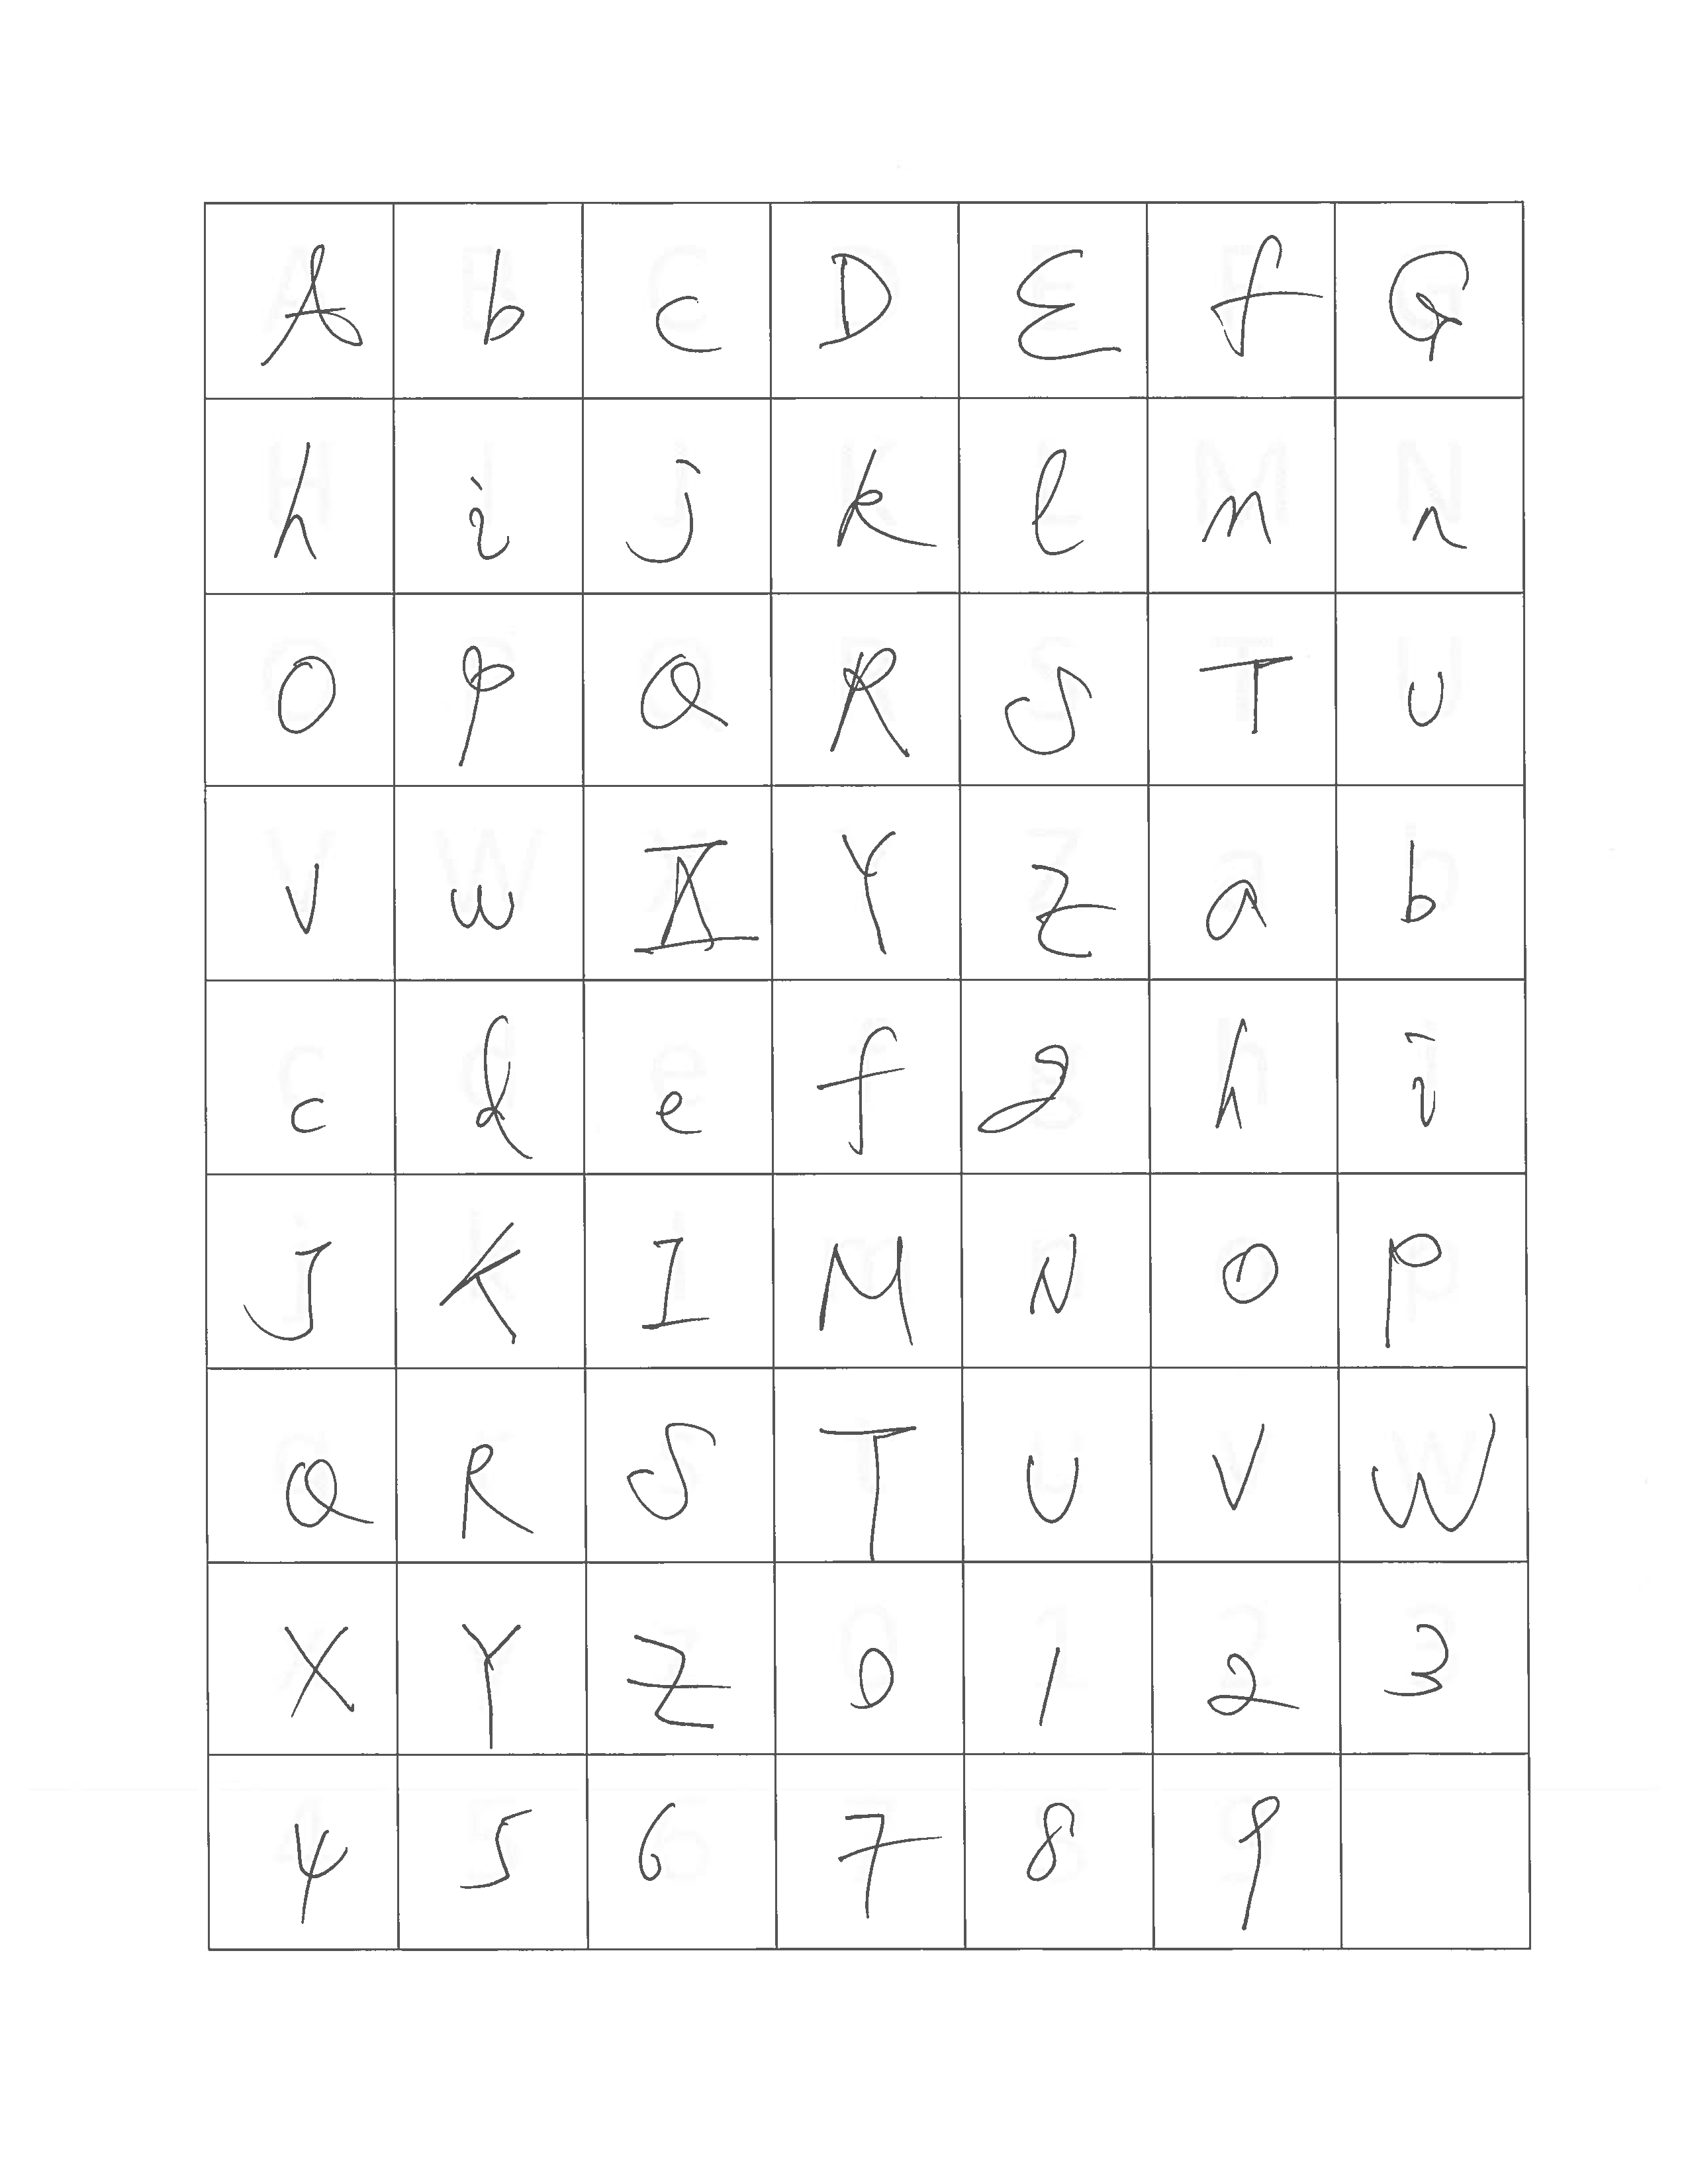 A b c D E f G
h i j k l m n
O p Q R S T U
V w X Y Z a b
c d e f g h i
J K I M N O P
Q R S T U V W
X Y Z 0 1 2 3
4 5 6 7 8 9